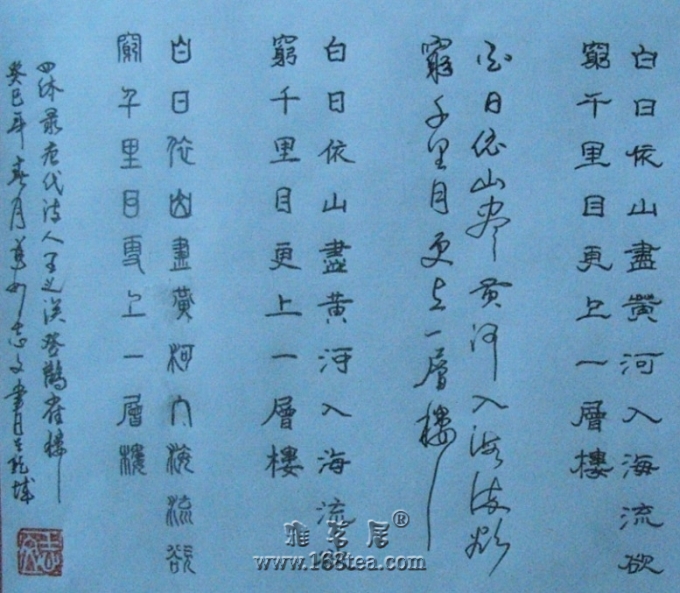 白日依山盡黃河入海流欲
窮千里目更上一層樓
白日依山盡黄河入海流欲
窮千里目更上一層樓
白日依山盡黄河入海流欲
窮千里目更上一層樓
白日依山盡黃河入海流欲
窮千里目更上一層樓
四体录唐代诗人王之涣登鸛雀樓
癸巳年春月志文書
雅茗居®
www.168tea.com